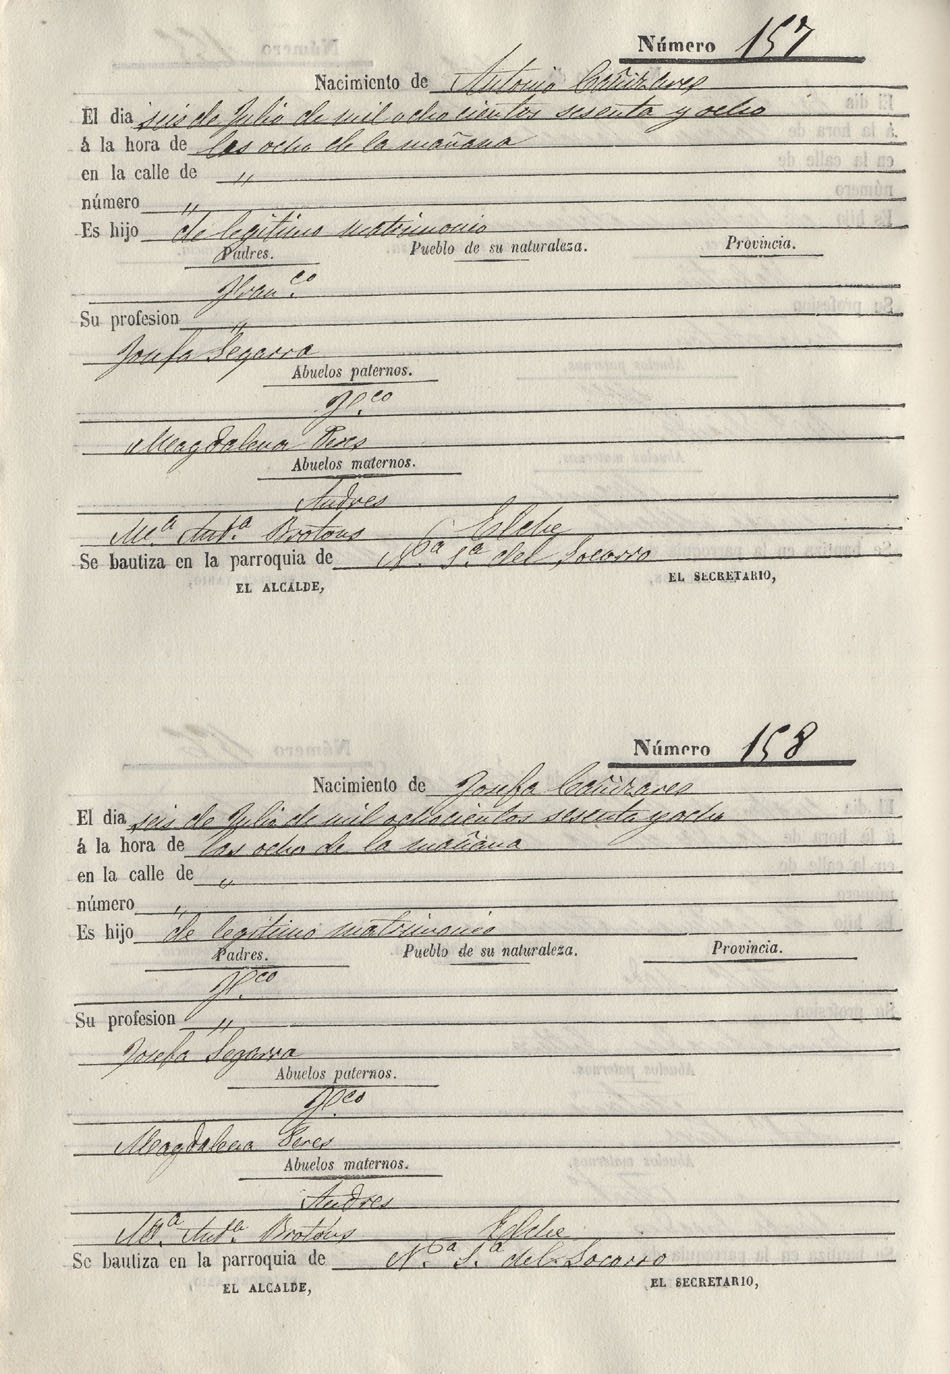 Número 157
Nacimiento de Antonio Cañizares
El dia seis de Julio de mil ochocientos sesenta y ocho
á la hora de las ocho de la mañana
en la calle de "
número "
Es hijo de legitimo matrimonio
Padres. Pueblo de su naturaleza. Provincia.
Fran.co
Su profesion "
Josefa Segarra
Abuelos paternos.
F.co
Magdalena Peres
Abuelos maternos.
Andres
M.a Ant.a Brotons Elche
Se bautiza en la parroquia de N.a S.a del Socorro
EL ALCALDE, EL SECRETARIO,
Número 158
Nacimiento de Josefa Cañizares
El dia seis de Julio de mil ochocientos sesenta y ocho
á la hora de las ocho de la mañana
en la calle de "
número "
Es hijo de legitimo matrimonio
Padres. Pueblo de su naturaleza. Provincia.
F.co
Su profesion "
Josefa Segarra
Abuelos paternos.
F.co
Magdalena Peres
Abuelos maternos.
Andres
M.a Ant.a Brotons Elche
Se bautiza en la parroquia de N.a S.a del Socorro
EL ALCALDE, EL SECRETARIO,